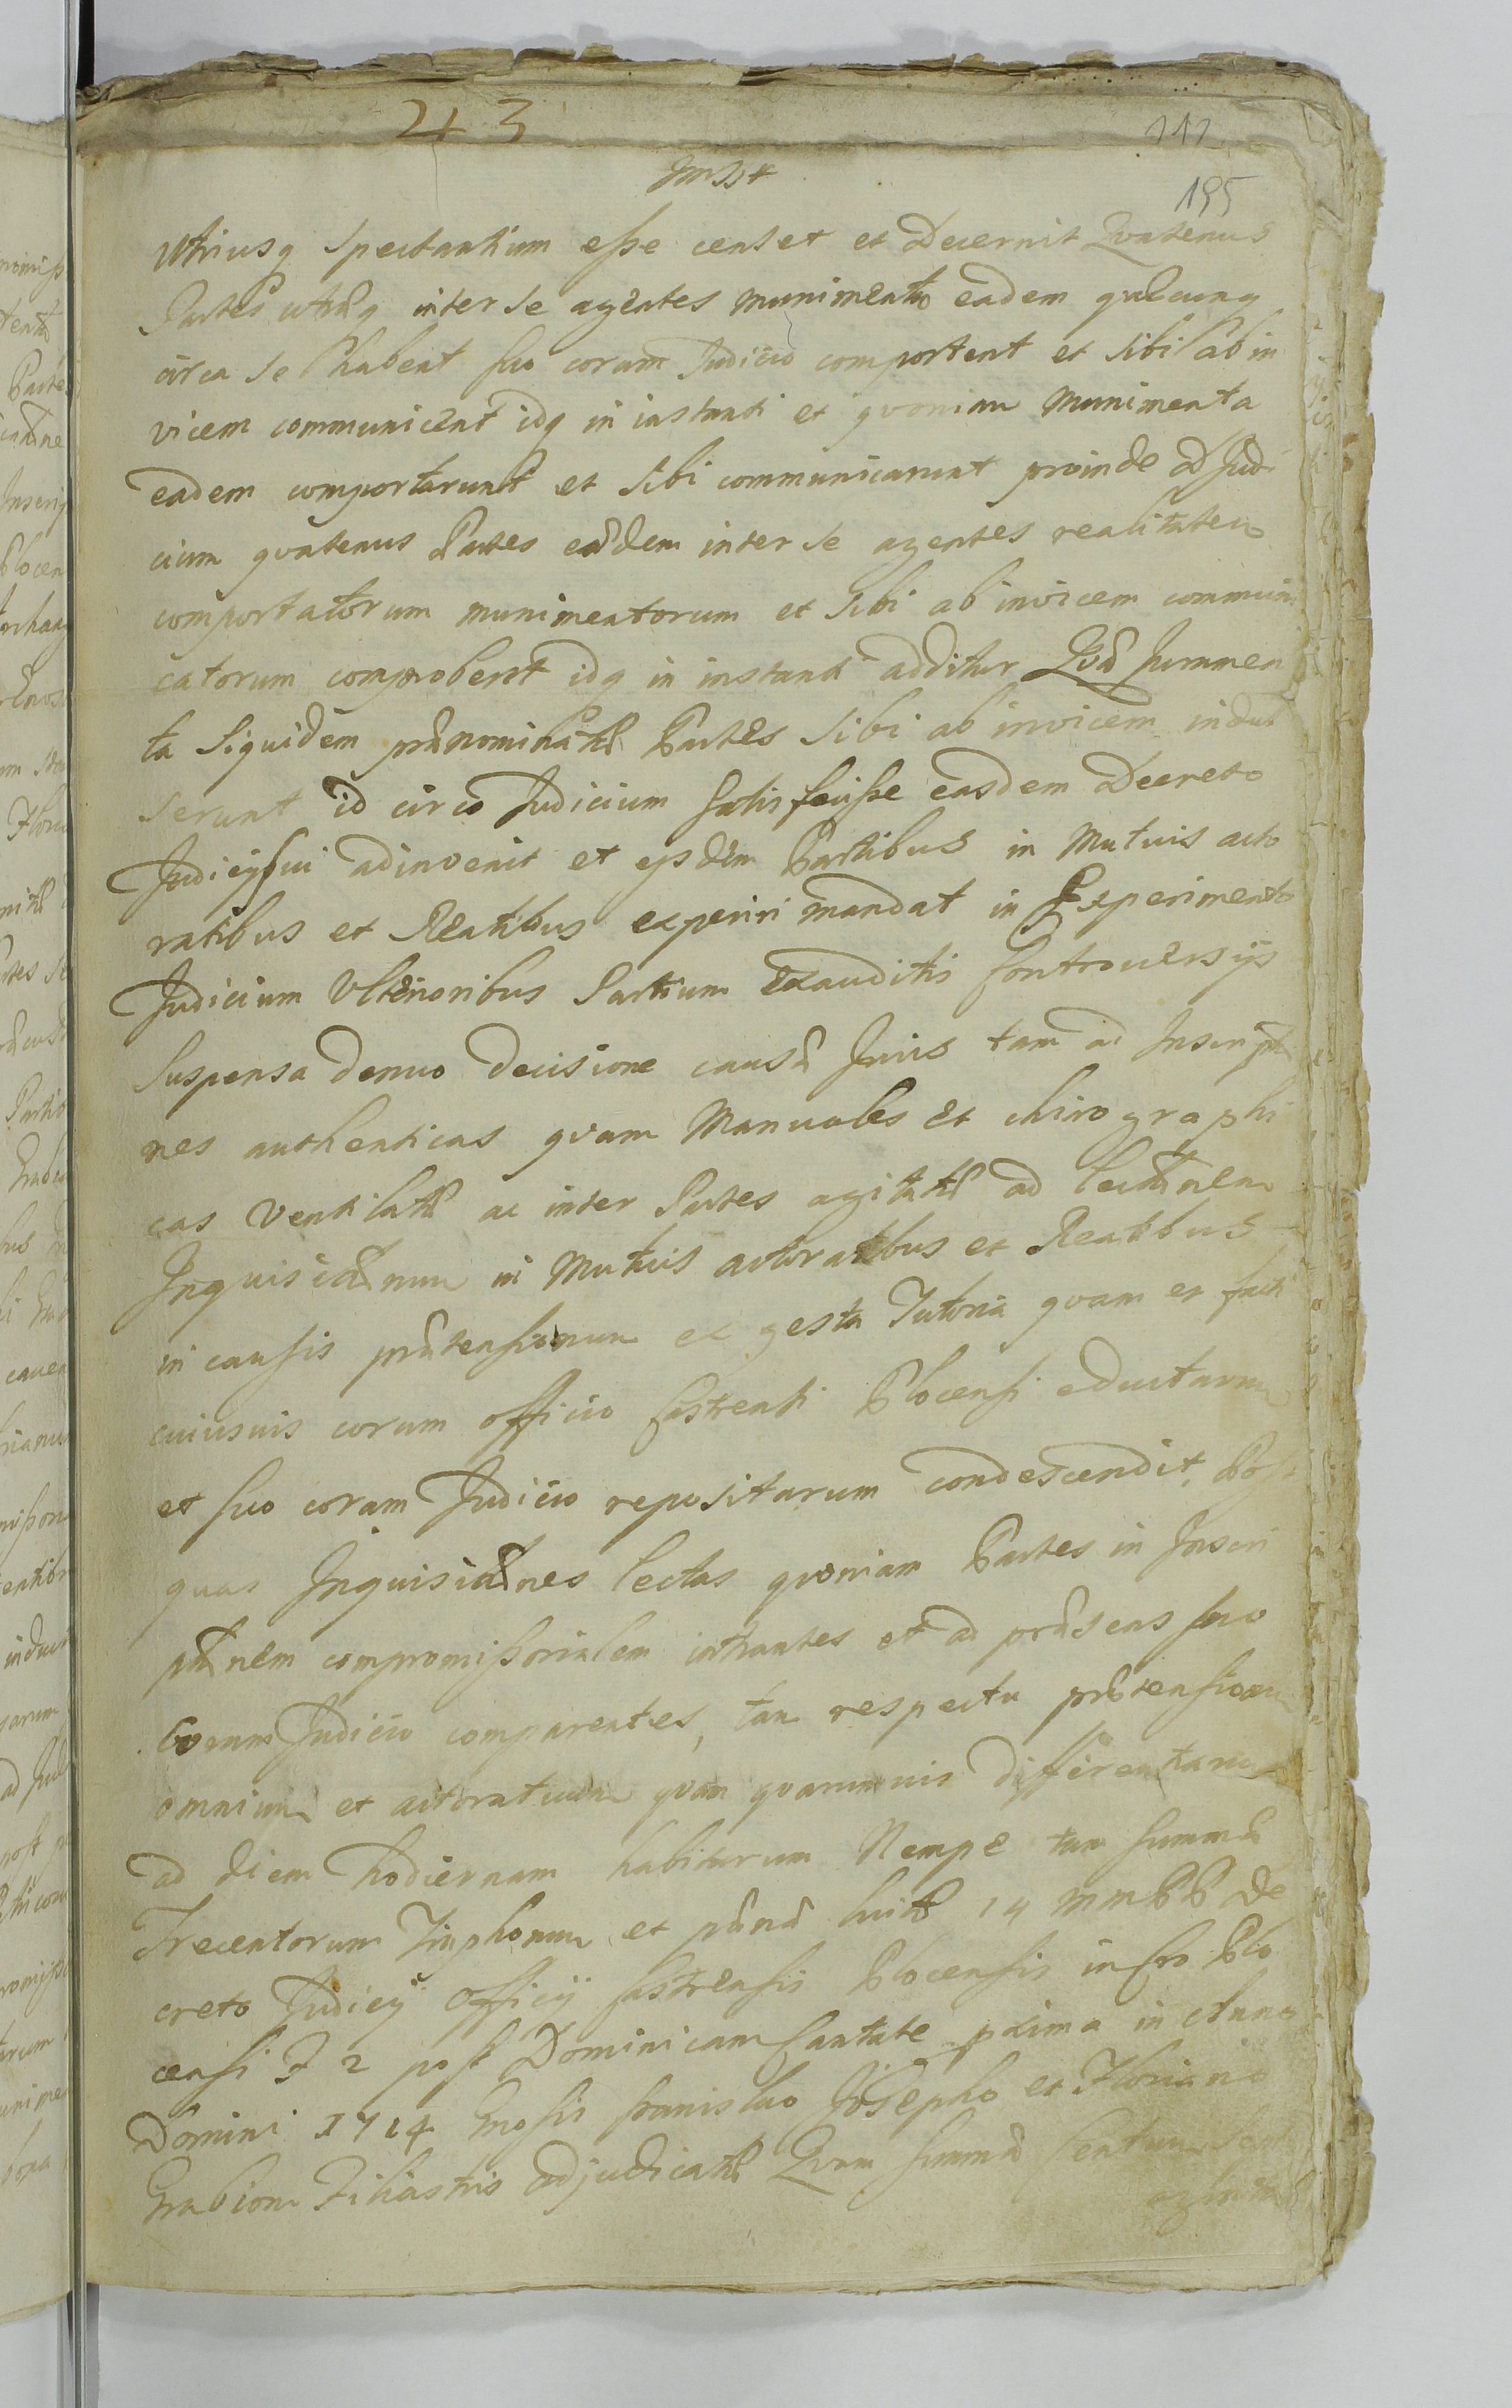 243
212
195
Utriusq spectantium esse censet et Decernit Quatenus
Partes utrŭq inter se agentes munimenta eadem quæcunq
circa se habent suo coram Judicio comportent et sibi ab in
vicem communicent idq in instanti et quoniam Munimenta
eadem comportarunt et sibi communicarunt proinde ad Judi
cium quatenus Partes eædem inter se agentes realitatem
comportatorum munimentorum et sibi ab invicem communi
catorum comprobent idq in instanti additur Quæ Juramen
ta siquidem prænominatæ Partes sibi ab invicem indul
serunt id circo Judicium satisfecisse easdem Decreto
Judicij sui adinvenit et ijsdem Partibus in Mutuis acto
ratibus et Reatibus experiri mandat in Experimento
Judicium Ulterioribus Partium Exauditis Controversijs
Suspensa denuo decisione causæ Juris tam ad Inscriptio
nes authenticas quam Manuales et chirographi
cas ventilatæ ac inter Partes agitatæ ad lectionem
Inquisitionum in Mutuis actoratibus et Reatibus
in causis prætensionum ex gesta Tutoria quam et facti
cuiusvis coram officio Castrensi Plocensi eductarum
et suo coram Judicio repositarum condescendit, Post
quas Inquisitiones lectas quoniam Partes in Inscri
ptionem compromissorialem intrantes et ad præsens suo
Coram Judicio comparentes, tam respectu prætensionum
omnium et actoratuum quam quarumvis differentiarum
ad diem hodiernam habitarum Nempe tam summæ
Trecentorum Tinphonum et pænæ luitæ 14 MMPP De
creto Judicij Officij Castrensis Plocensis in Cro Plo
censi F 2 post Dominicam Cantate proxima in Anno
Domini 1714 Gnosis Stanislao Josepho et Floriano
Grabiom Filiastris adjudicatæ Quam summæ Centum